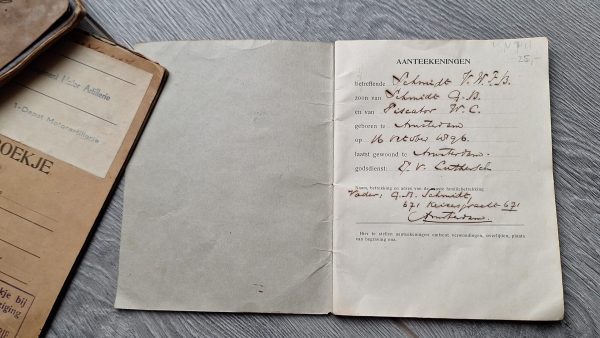 Depot Motor Artillerie
1-Depot Motorartillerie
OEKJE
kje bij
iging
RIJE
25,-
AANTEEKENINGEN
betreffende Schmidt V. W. F. B.
zoon van Schmidt G. B.
en van Piscator W. C.
geboren te Amsterdam
op 16 October 1896.
laatst gewoond te Amsterdam.
godsdienst: E. V. Luthersch
Naam, betrekking en adres van de naaste familiebetrekking.
Vader: G. B. Schmidt,
671 Keizersgracht 671
Amsterdam.
Hier te stellen aanteekeningen omtrent verwondingen, overlijden, plaats
van begraving enz.